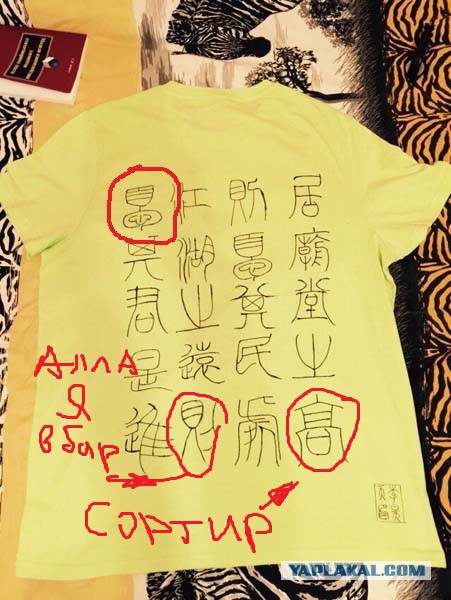 居廟堂之高
則憂其民處
江湖之遠則
憂其君是進
Алла
Я
в бар
Сортир
YAPLAKAL.COM